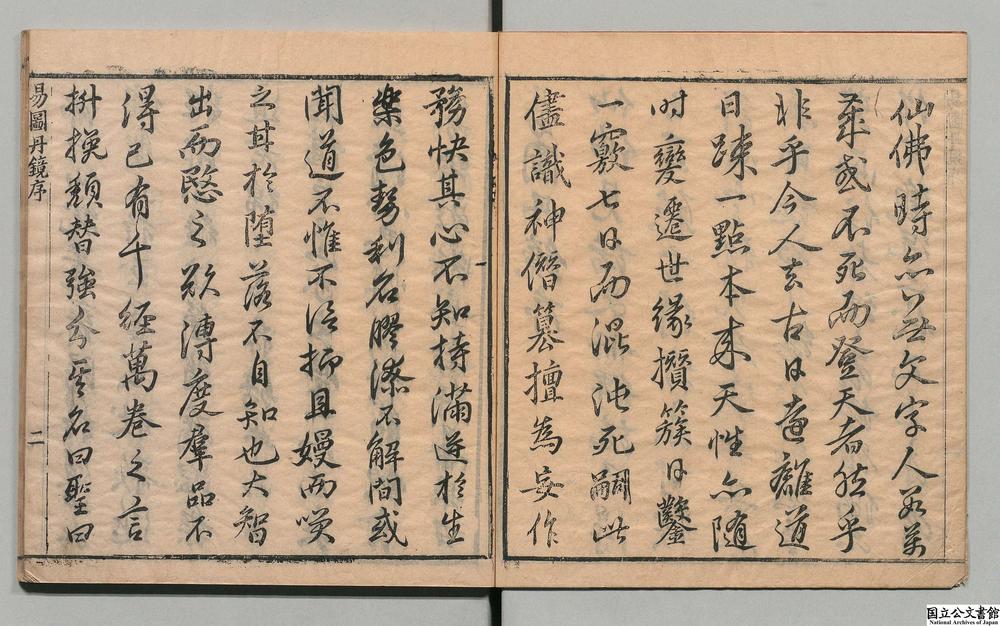 仙佛時亦無文字人萬
壽或不死而登天者然乎
非乎今人去古日遠離道
日疎一點本来天性亦随
时變遷世緣攢簇日鑿
一竅七日而混沌死嗣此
儘識神僭篡擅為妄作
務快其心不知持滿逆於生
樂色勢利名膠漆不解間或
聞道不惟不信抑且嫚而笑
之甘於堕落不自知也大智
出而愍之欲溥度羣品不
得已有千經萬卷之言
挽頽替強分其名曰聖曰
易圖丹鏡序 二
国立公文書館
National Archives of Japan